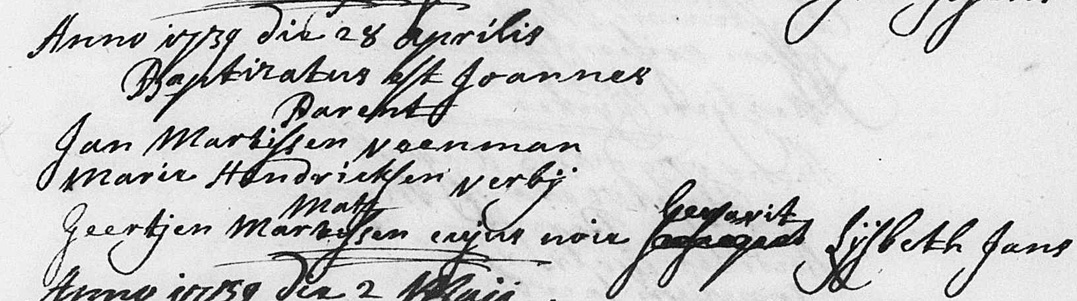 Anno 1739 die 28 Aprilis
Baptizatus est Joannes
Parent
Jan Martissen veenman
Marie Hendricksen verbij
Matr
Geertjen Martissen cujus noie Gevavit Lijsbeth Jans
Anno 1739 die 2 Maij